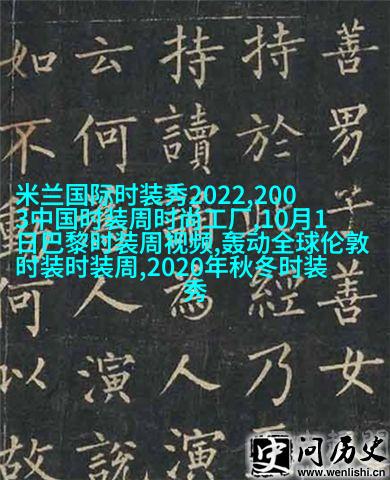 善男子善女
持於經乃
持讀為人演
云何人演說
如不動何以故
米兰国际时装秀2022,200
3中国时装周时尚工厂,10月1
日巴黎时装周视频,轰动全球伦敦
时装时装周,2020年秋冬时装
秀
史问历史
www.wenlishi.cn